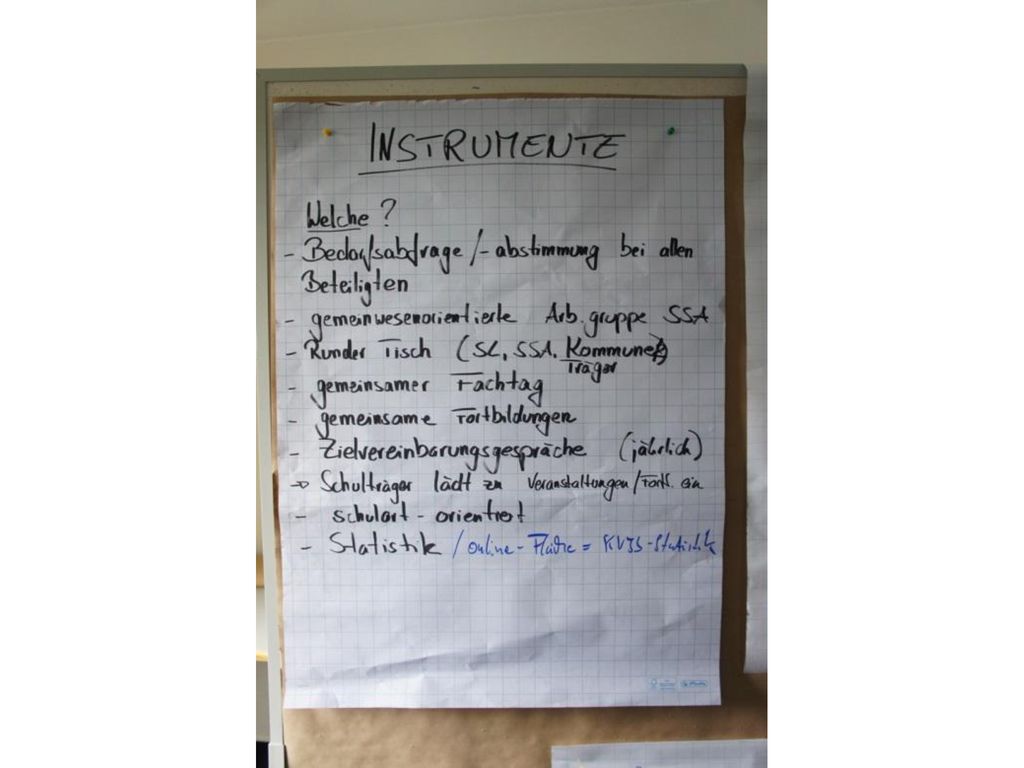 INSTRUMENTE
Welche ?
- Bedarfsabfrage /- abstimmung bei allen
Beteiligten
- gemeinwesenorientierte Arb.gruppe SSA
- Runder Tisch (SL, SSA, Kommune)
Träger
- gemeinsamer Fachtag
- gemeinsame Fortbildungen
- Zielvereinbarungsgespräche (jährlich)
→ Schulträger lädt zu Veranstaltungen/Fortb. ein
- schulart-orientiert
- Statistik / online- = KVJS-Statistik